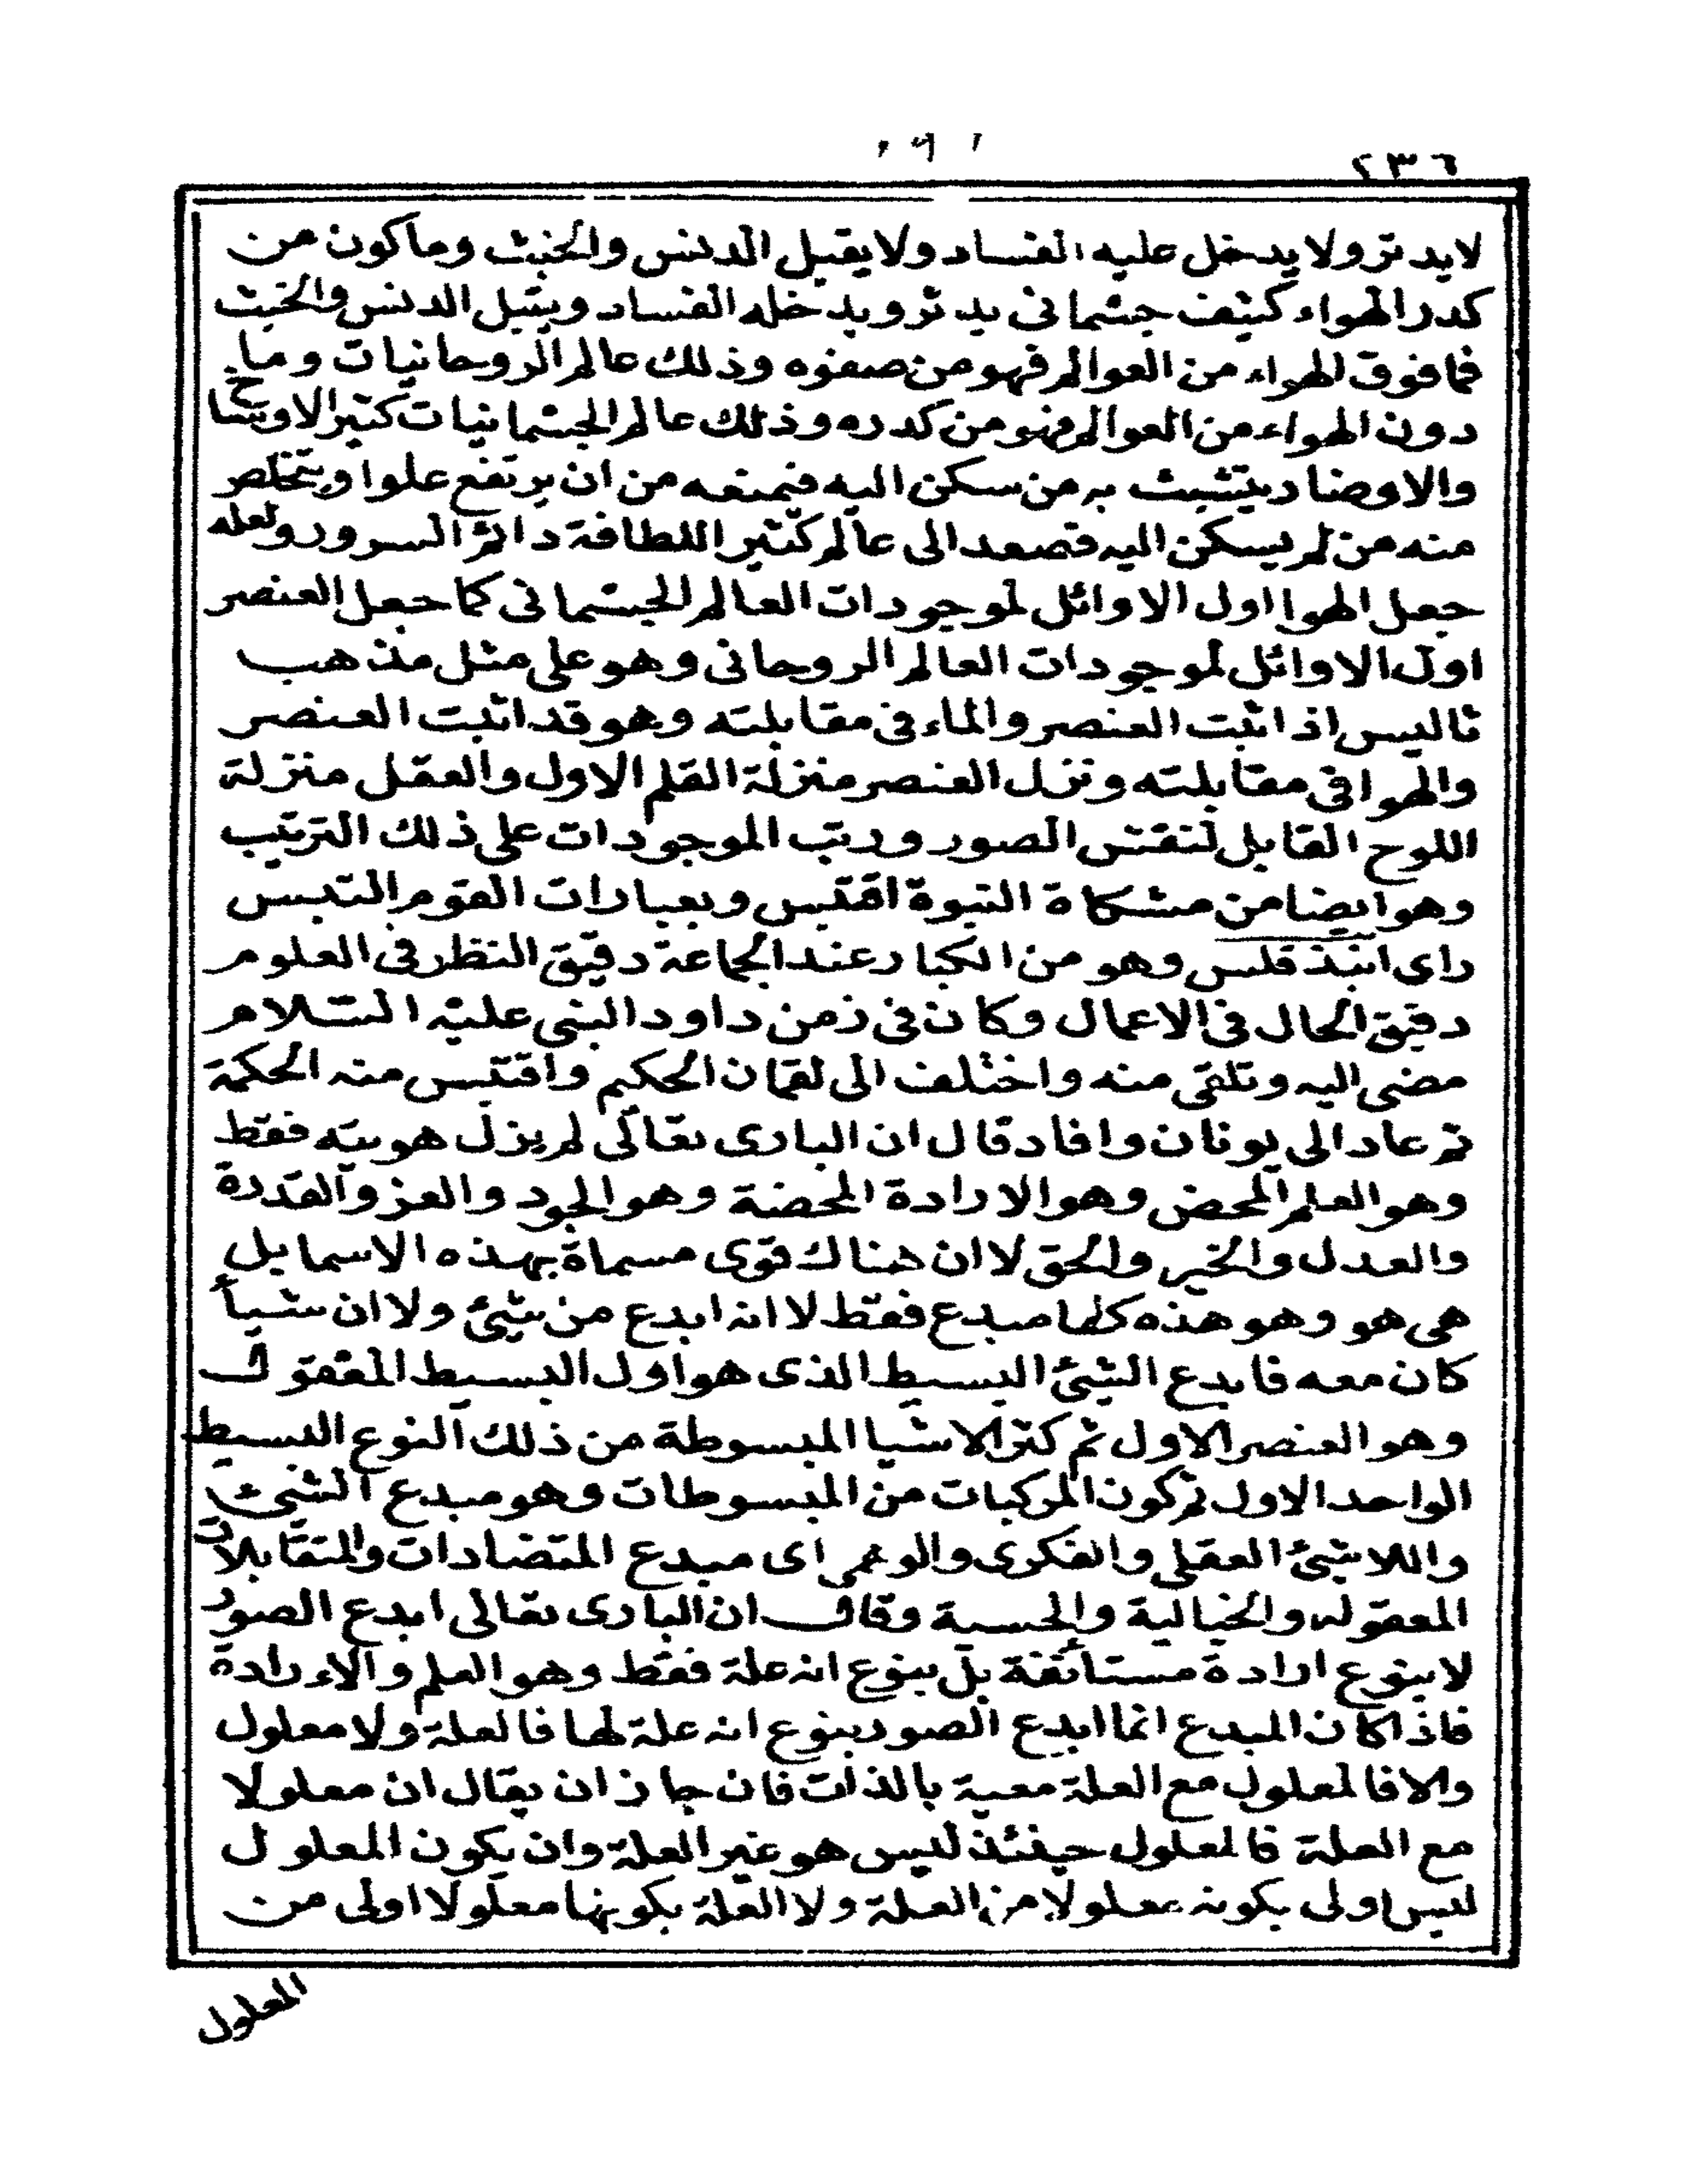 ٢٣٦
لا يدثر ولا يدخل عليه الفساد ولا يقبل الدنس والخبث وما كون من
كدر الهواء كثيف جسمانى يدثر ويدخله الفساد ويقبل الدنس والخبث
فما فوق الهواء من العوالم فهو من صفوه وذلك عالم الروحانيات وما
دون الهواء من العوالم فهو من كدره وذلك عالم الجسمانيات كثير الاوساخ
والاوضار يتشبث به من سكن اليه فيمنعه من ان يرتفع علوا ويتخلص
منه من لم يسكن اليه فصعد الى عالم كثير اللطافة دائم السرور ولعله
جعل الهوا اول الاوائل لموجودات العالم الجسمانى كما جعل العنصر
اول الاوائل لموجودات العالم الروحانى وهو على مثل مذهب
ثاليس اذ اثبت العنصر والماء فى مقابلته وهو قد اثبت العنصر
والهوا فى مقابلته ونزل العنصر منزلة القلم الاول والعقل منزلة
اللوح القابل لنقش الصور ورتب الموجودات على ذلك الترتيب
وهو ايضا من مشكاة النبوة اقتبس وبعبارات القوم التبس
راى انبذقلس وهو من الكبار عند الجماعة دقيق النظر فى العلوم
دقيق الحال فى الاعمال وكان فى زمن داود النبى عليه السلام
مضى اليه وتلقى منه واختلف الى لقمان الحكيم واقتبس منه الحكمة
ثم عاد الى يونان وافاد قال ان البارى تعالى لم يزل هويته فقط
وهو العلم المحض وهو الارادة المحضة وهو الجود والعز والقدرة
والعدل والخير والحق لا ان هناك قوى مسماة بهذه الاسما بل
هى هو وهو هذه كلها مبدع فقط لا انه ابدع من شئ ولا ان شيأ
كان معه فابدع الشئ البسيط الذى هو اول البسيط المعقول
وهو العنصر الاول ثم كثر الاشيا المبسوطة من ذلك النوع البسيط
الواحد الاول ثم كون المركبات من المبسوطات وهو مبدع الشئ
واللا شئ العقلى والفكرى والوهمى اى مبدع المتضادات والمتقابلات
المعقوله والخيالية والحسية وقال ان البارى تعالى ابدع الصور
لا بنوع ارادة مستأنفة بل بنوع انه علة فقط وهو العلم والاءرادة
فاذا كان المبدع انما ابدع الصور بنوع انه علة لها فالعلة ولا معلول
والا فالمعلول مع العلة معية بالذات فان جاز ان يقال ان معلولا
مع العلة فالمعلول حينئذ ليس هو غير العلة وان يكون المعلول
ليس اولى بكونه معلولا من العلة ولا العلة بكونها معلولا اولى من
المعلول